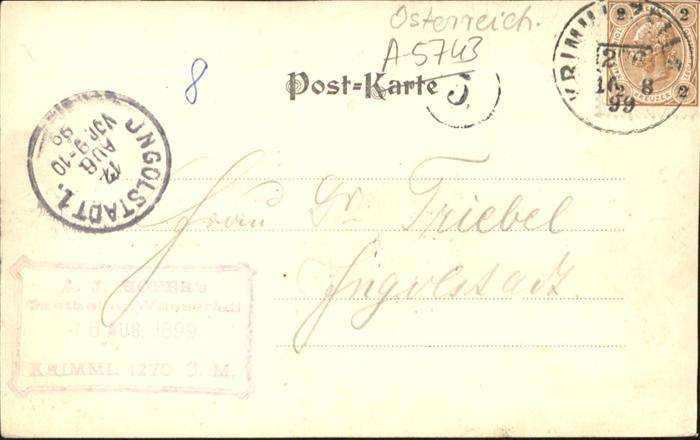 Österreich.
A-5743
8
Post-Karte
5
KRIMML
2
16 8
99
2 2
2 KREUZER 2
INGOLSTADT 1.
17
AUG.
VOR 9-10
99
Frau Dr Triebel
Ingolstadt.
A. J. HOFER'S
Gasthaus Wasserfall
16 AUG. 1899
KRIMML 1270 Ü. M.